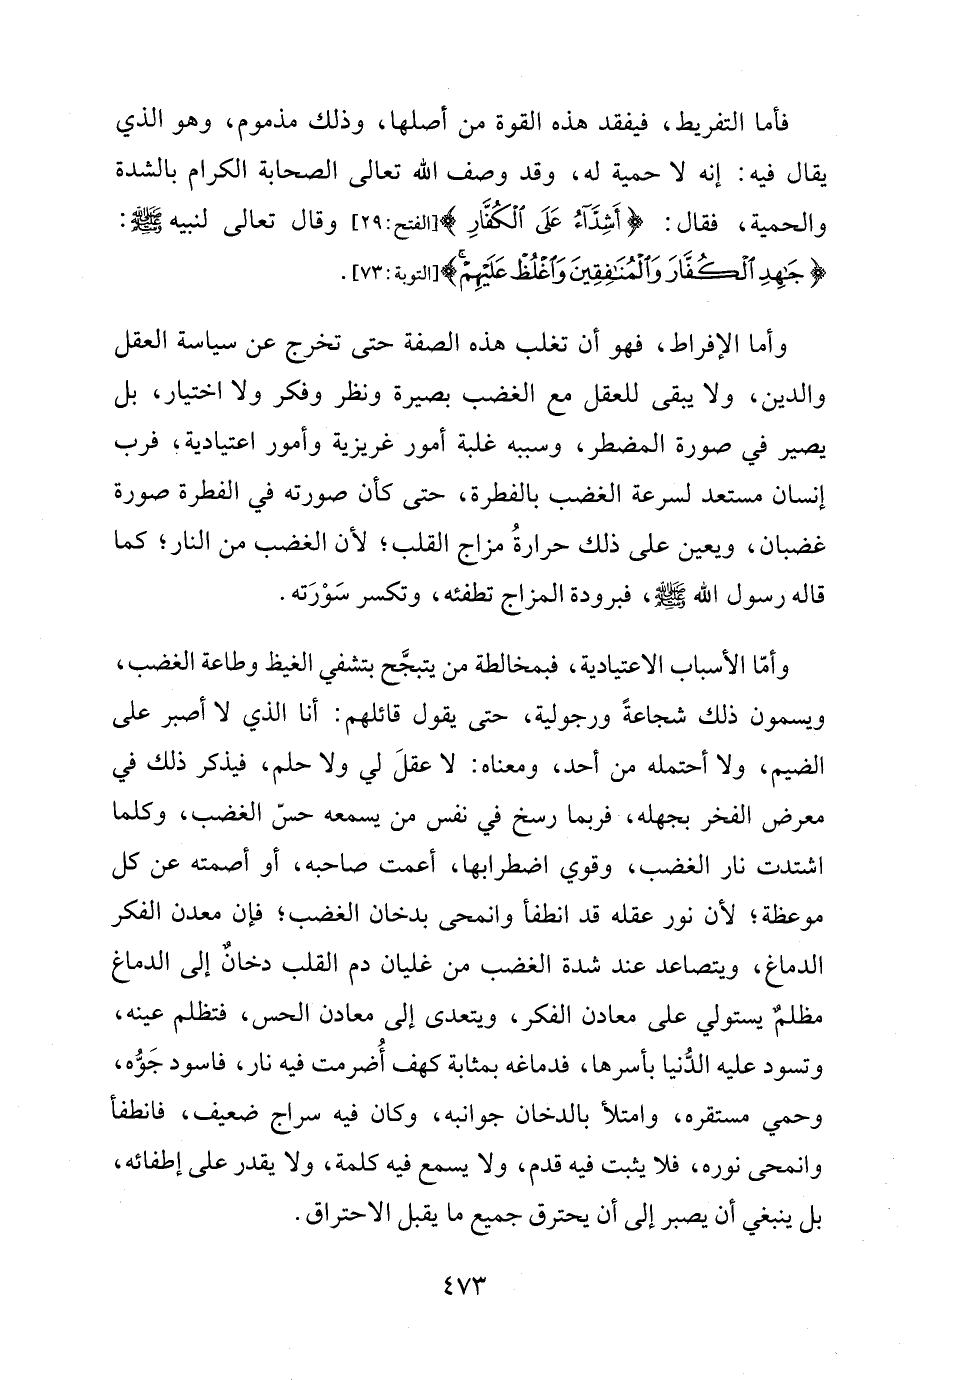 فأما التفريط، فيفقد هذه القوة من أصلها، وذلك مذموم، وهو الذي
يقال فيه: إنه لا حمية له، وقد وصف الله تعالى الصحابة الكرام بالشدة
والحمية، فقال: ﴿أَشِدَّآءُ عَلَى ٱلْكُفَّارِ﴾[الفتح:٢٩] وقال تعالى لنبيه ﷺ:
﴿جَٰهِدِ ٱلْكُفَّارَ وَٱلْمُنَٰفِقِينَ وَٱغْلُظْ عَلَيْهِمْۚ﴾[التوبة:٧٣].
وأما الإفراط، فهو أن تغلب هذه الصفة حتى تخرج عن سياسة العقل
والدين، ولا يبقى للعقل مع الغضب بصيرة ونظر وفكر ولا اختيار، بل
يصير في صورة المضطر، وسببه غلبة أمور غريزية وأمور اعتيادية، فرب
إنسان مستعد لسرعة الغضب بالفطرة، حتى كأن صورته في الفطرة صورة
غضبان، ويعين على ذلك حرارةُ مزاج القلب؛ لأن الغضب من النار؛ كما
قاله رسول الله ﷺ، فبرودة المزاج تطفئه، وتكسر سَوْرَته.
وأمّا الأسباب الاعتيادية، فبمخالطة من يتبجَّح بتشفي الغيظ وطاعة الغضب،
ويسمون ذلك شجاعةً ورجولية، حتى يقول قائلهم: أنا الذي لا أصبر على
الضيم، ولا أحتمله من أحد، ومعناه: لا عقلَ لي ولا حلم، فيذكر ذلك في
معرض الفخر بجهله، فربما رسخ في نفس من يسمعه حسّ الغضب، وكلما
اشتدت نار الغضب، وقوي اضطرابها، أعمت صاحبه، أو أصمته عن كل
موعظة؛ لأن نور عقله قد انطفأ وانمحى بدخان الغضب؛ فإن معدن الفكر
الدماغ، ويتصاعد عند شدة الغضب من غليان دم القلب دخانٌ إلى الدماغ
مظلمٌ يستولي على معادن الفكر، ويتعدى إلى معادن الحس، فتظلم عينه،
وتسود عليه الدُّنيا بأسرها، فدماغه بمثابة كهف أُضرمت فيه نار، فاسود جَوُّه،
وحمي مستقره، وامتلأ بالدخان جوانبه، وكان فيه سراج ضعيف، فانطفأ
وانمحى نوره، فلا يثبت فيه قدم، ولا يسمع فيه كلمة، ولا يقدر على إطفائه،
بل ينبغي أن يصبر إلى أن يحترق جميع ما يقبل الاحتراق.
٤٧٣